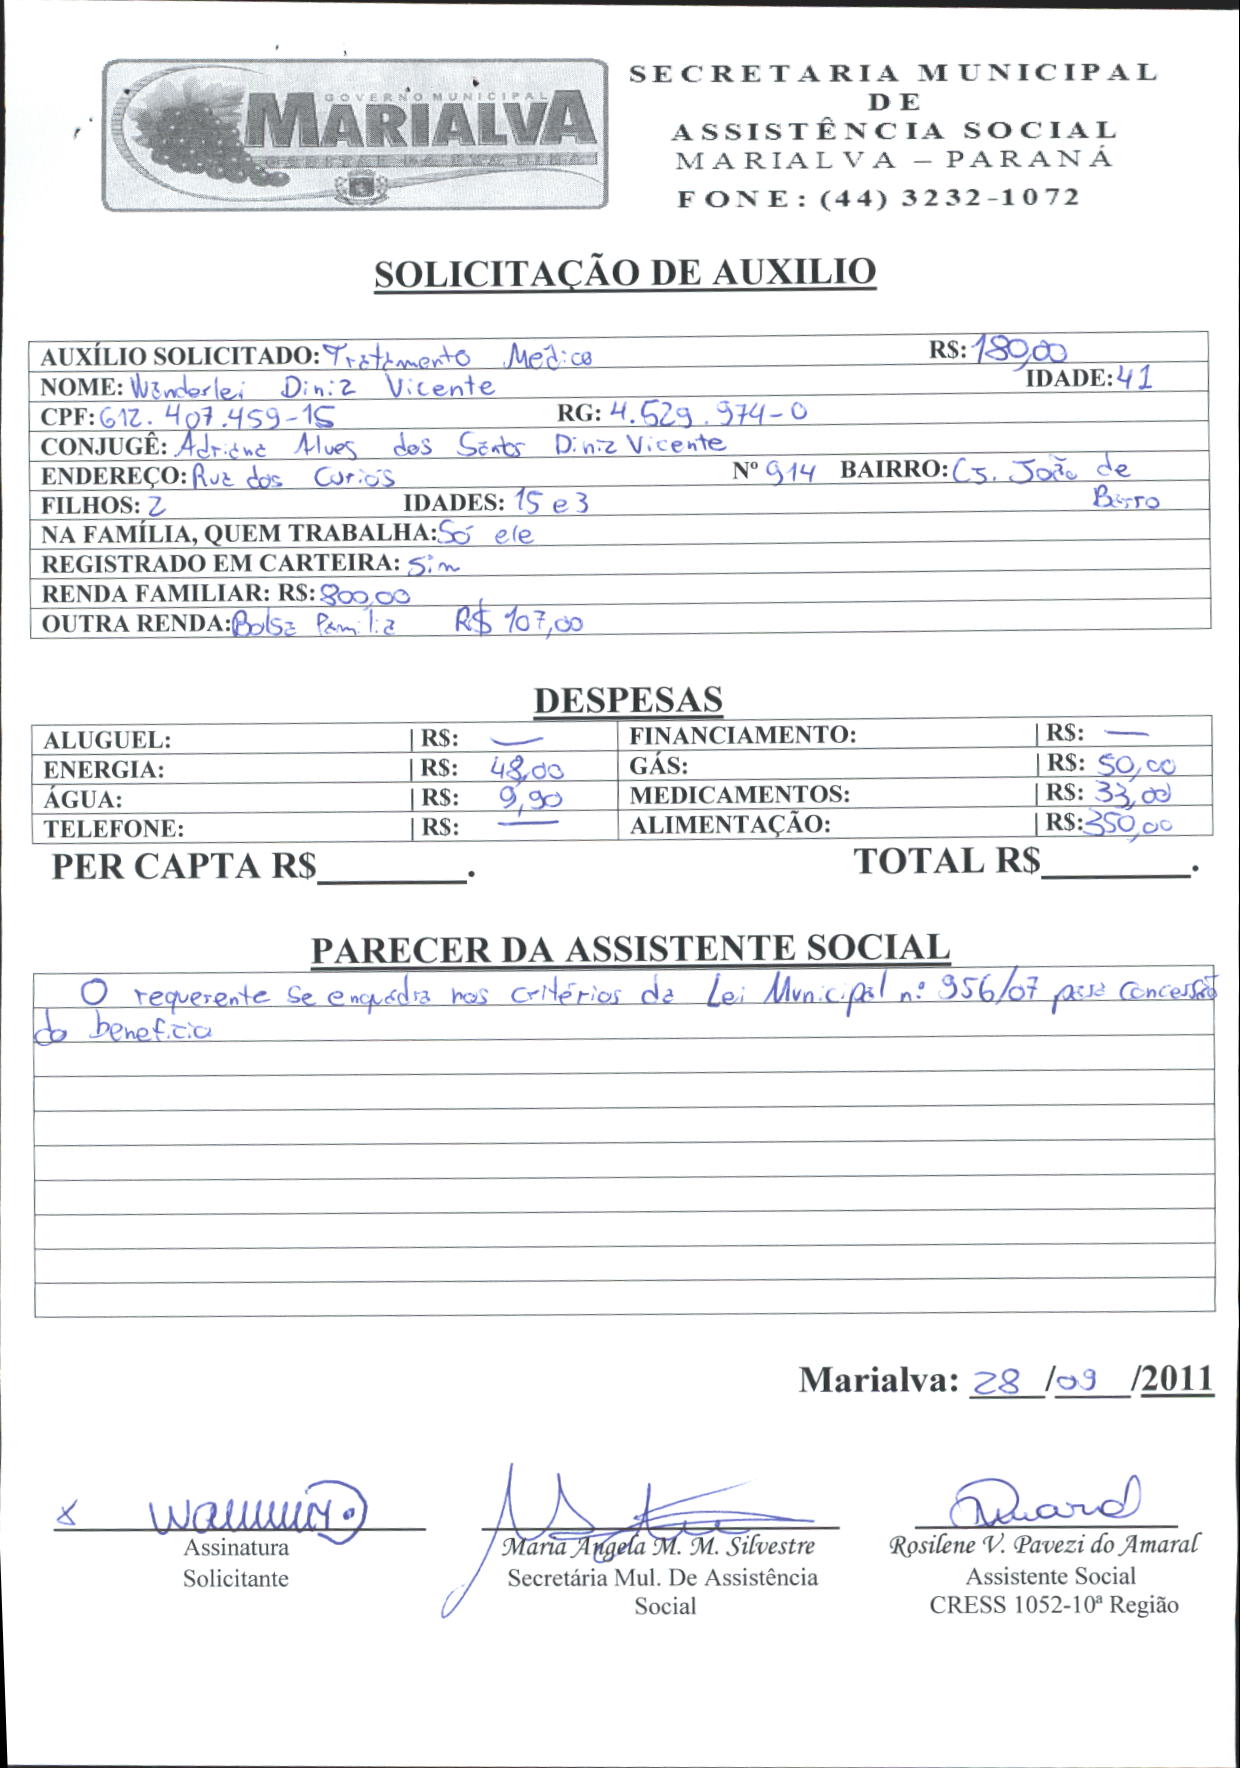 GOVERNO MUNICIPAL
MARIALVA
CAPITAL DA UVA FINA
SECRETARIA MUNICIPAL
DE
ASSISTÊNCIA SOCIAL
MARIALVA – PARANÁ
FONE: (44) 3232-1072
SOLICITAÇÃO DE AUXILIO
AUXÍLIO SOLICITADO: Tratamento Medico R$: 180,00
NOME: Wanderlei Diniz Vicente IDADE: 41
CPF: 612.407.459-15 RG: 4.529.974-0
CONJUGÊ: Adriana Alves dos Santos Diniz Vicente
ENDEREÇO: Rua dos Curiós Nº 914 BAIRRO: Cj. João de
Barro
FILHOS: 2 IDADES: 15 e 3
NA FAMÍLIA, QUEM TRABALHA: Só ele
REGISTRADO EM CARTEIRA: Sim
RENDA FAMILIAR: R$: 800,00
OUTRA RENDA: Bolsa Familia R$ 107,00
DESPESAS
ALUGUEL: | R$: — FINANCIAMENTO: | R$: —
ENERGIA: | R$: 48,00 GÁS: | R$: 50,00
ÁGUA: | R$: 9,90 MEDICAMENTOS: | R$: 33,00
TELEFONE: | R$: — ALIMENTAÇÃO: | R$: 350,00
PER CAPTA R$________. TOTAL R$________.
PARECER DA ASSISTENTE SOCIAL
O requerente se enquadra nos critérios da Lei Municipal n.º 956/07 para concessão
do beneficio
Marialva: 28 /09 /2011
x
Assinatura
Solicitante
Maria Angela M. M. Silvestre
Secretária Mul. De Assistência
Social
Rosilene V. Pavezi do Amaral
Assistente Social
CRESS 1052-10ª Região